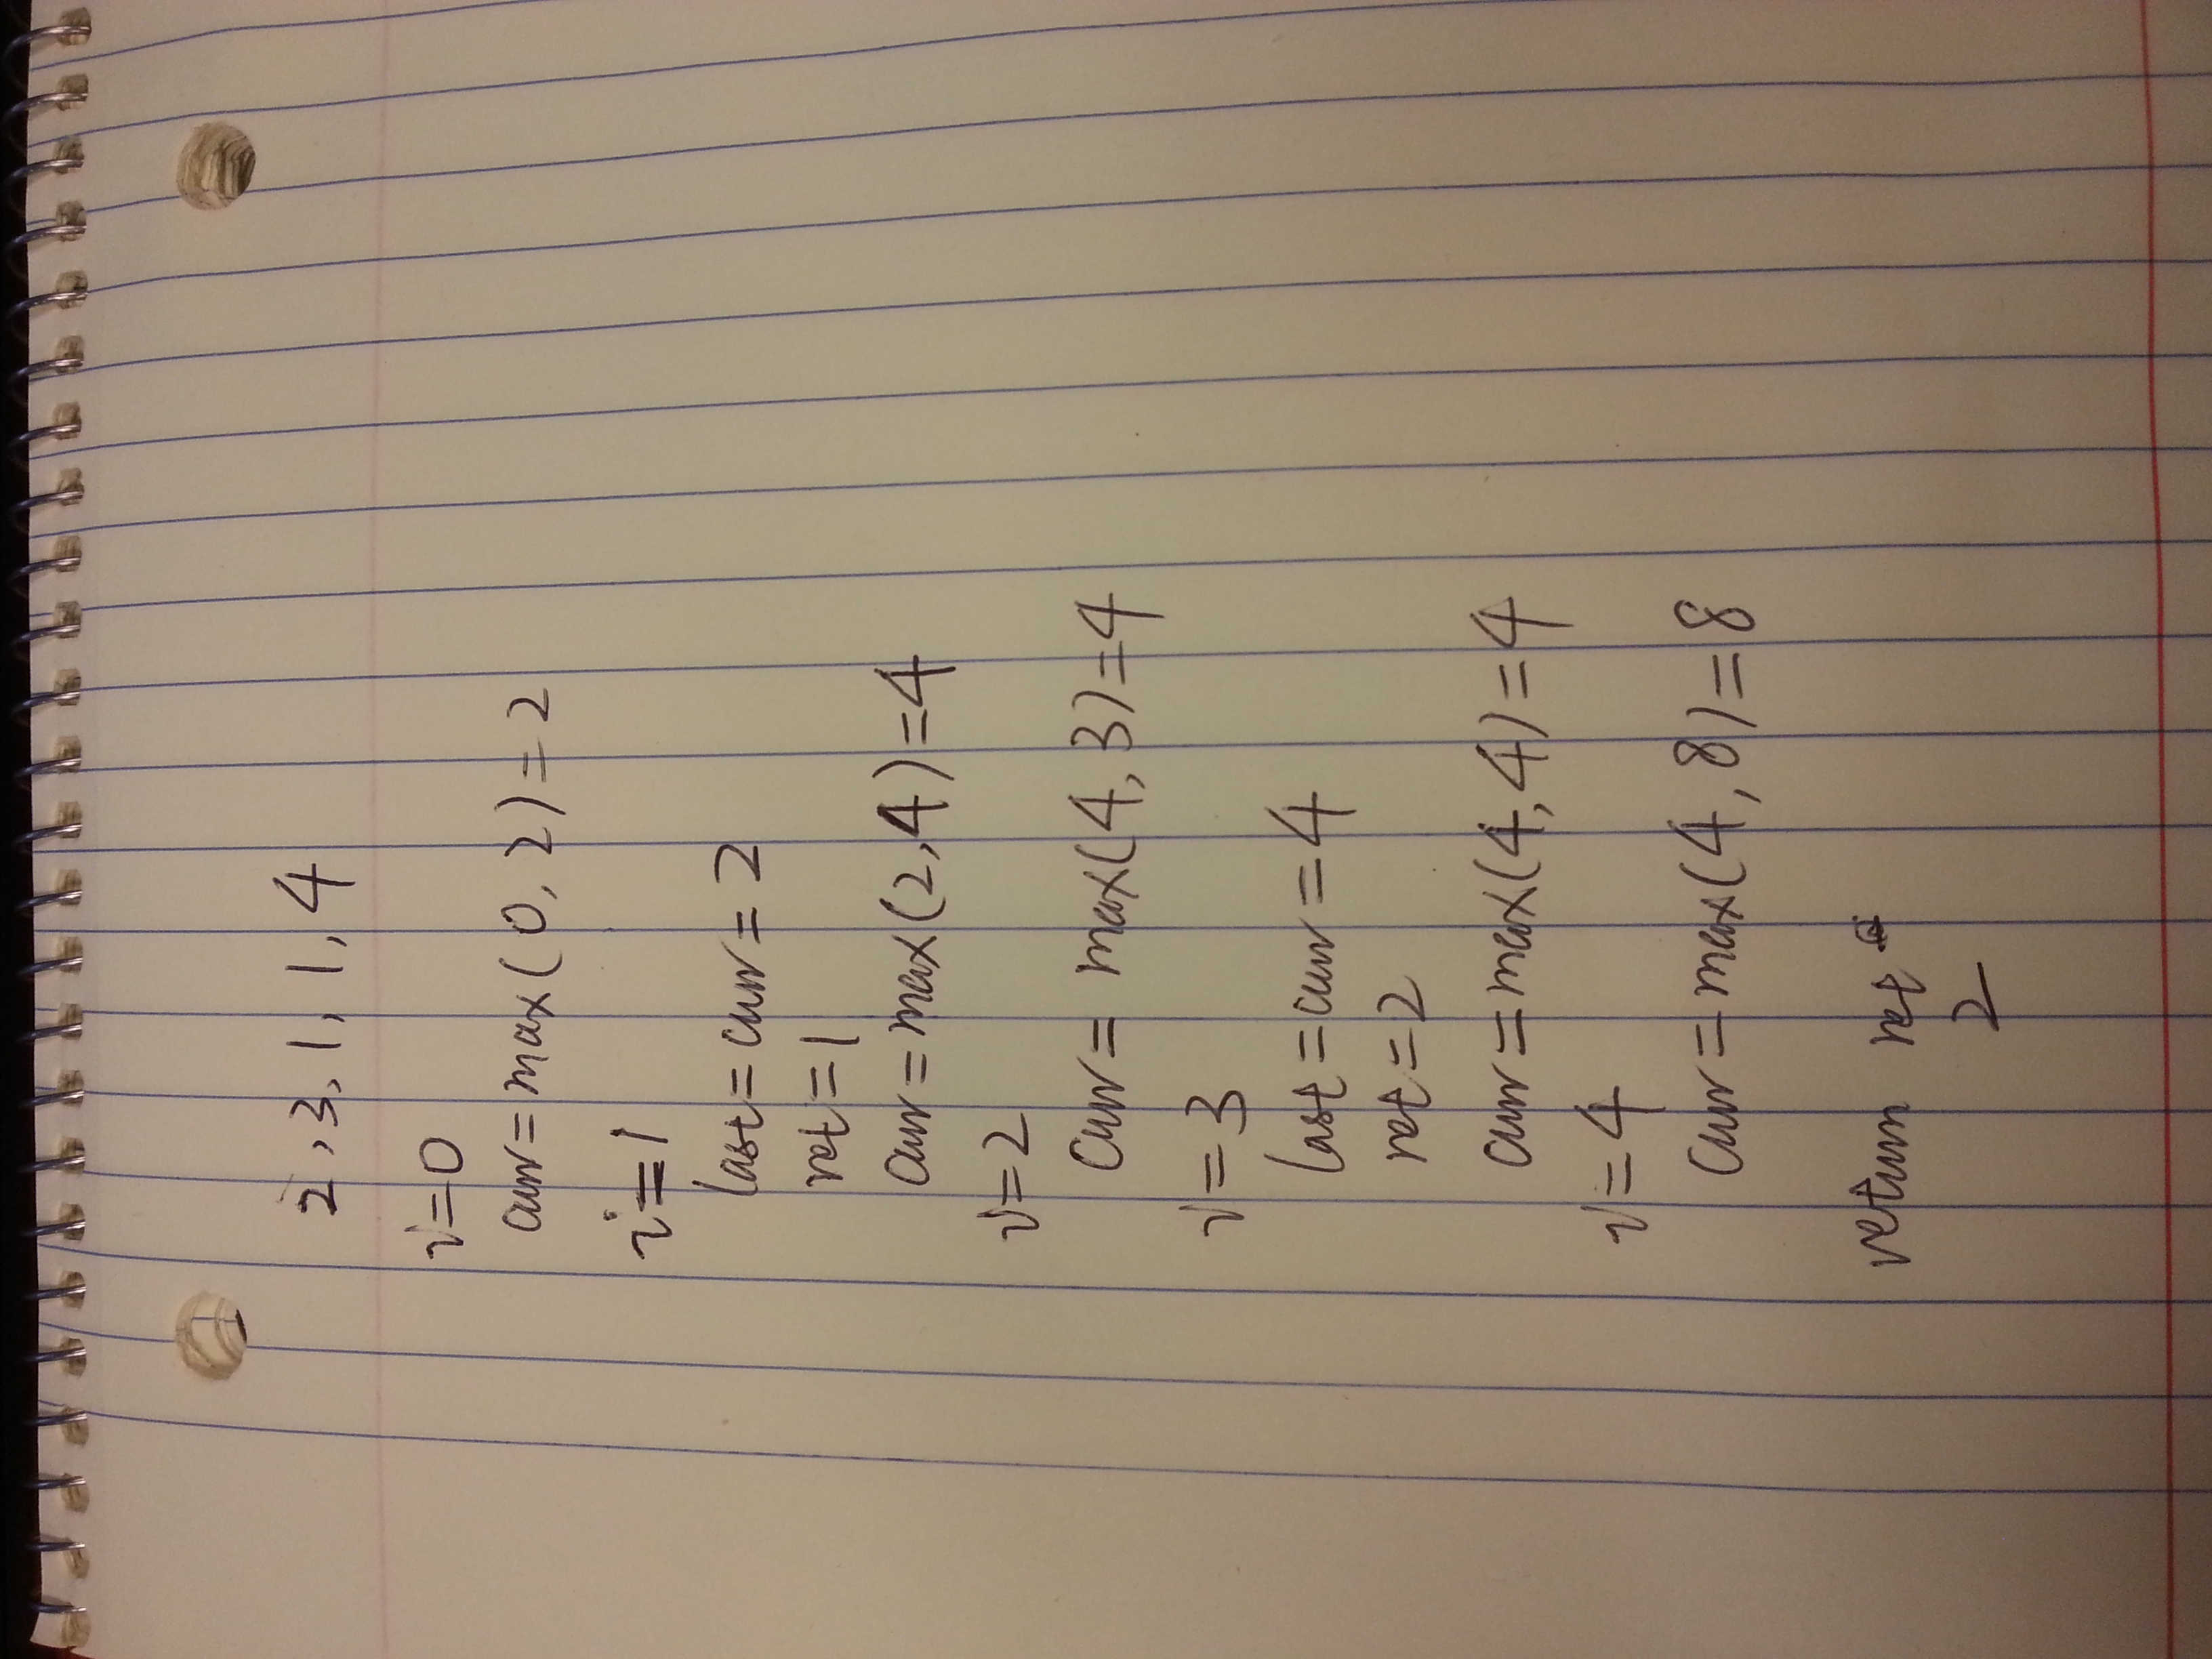 2, 3, 1, 1, 4
i=0
curr=max(0,2)=2
i=1
last=curr=2
ret=1
curr=max(2,4)=4
i=2
curr= max(4,3)=4
i=3
last=curr=4
ret=2
curr=max(4,4)=4
i=4
curr=max(4,8)=8
return ret
2